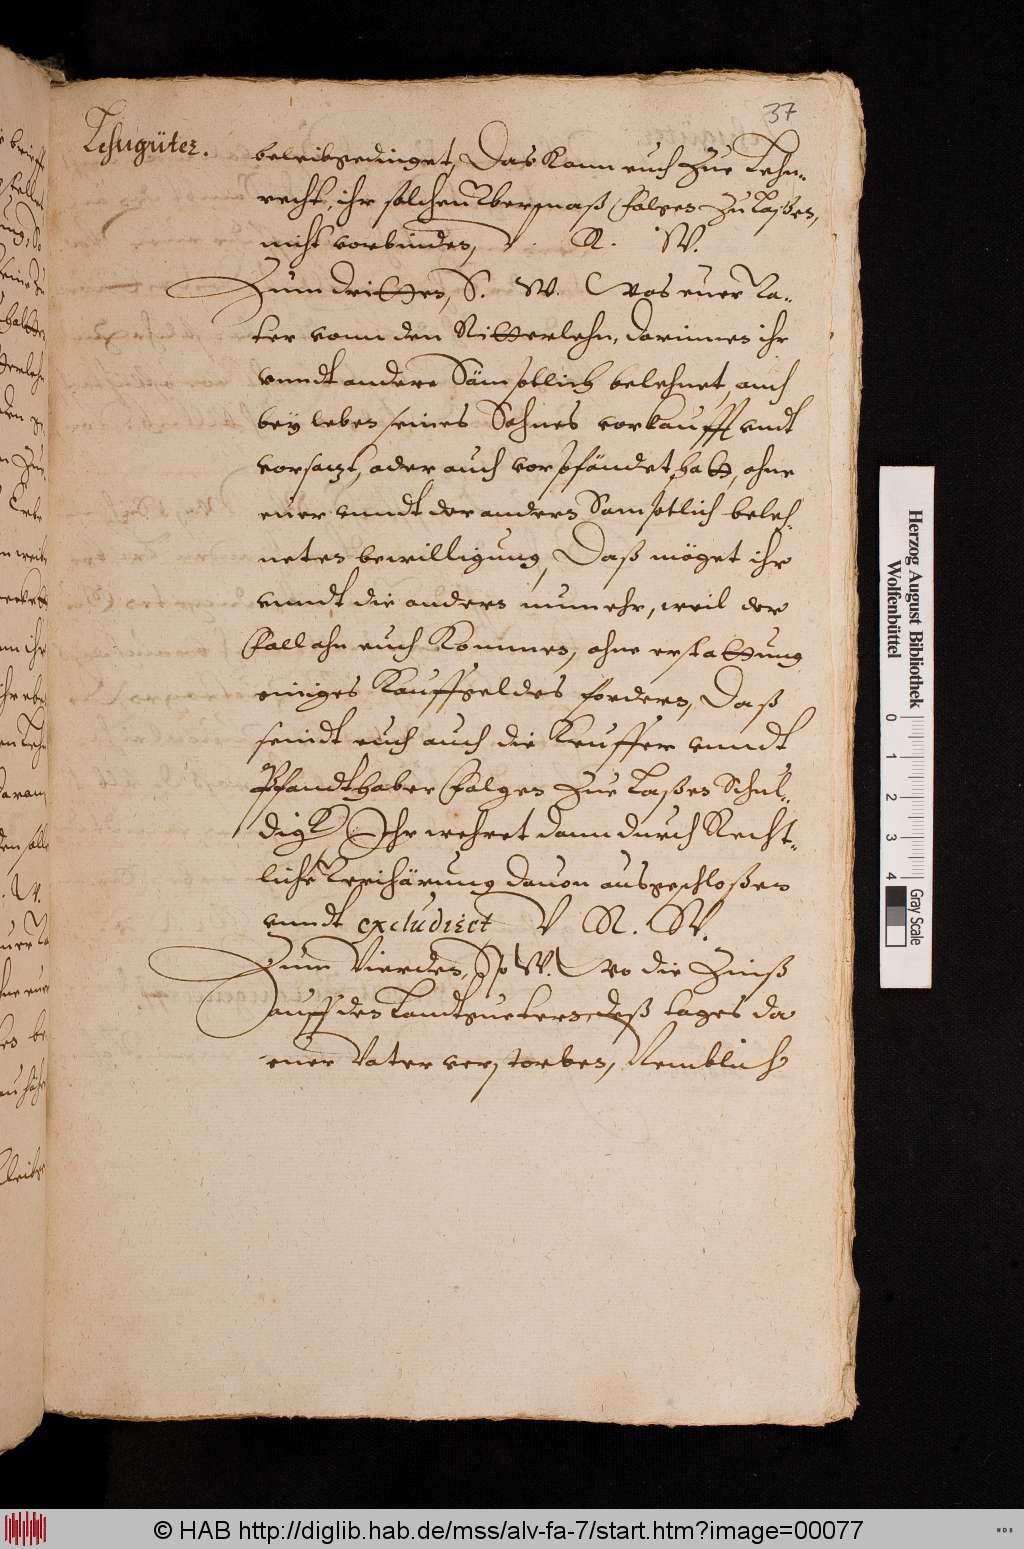 37
Lehngüter.
beleibgedinget, Das kann euch zue Lehn-
recht, ihr solchen Ubermaß folgen zu laßen,
nicht vorbinden, V. R. W.
Zum dritten, S. W. Was euer Va-
ter vonn den Ritterlehn, darinnen ihr
vnndt andere Sämptlich belehnet, auch
bey leben seines Sohnes vorkaufft vndt
vorsazt, oder auch vorpfändet hatt, ohne
euer vnndt der andern Samptlich beleh-
neten bewilligung, Daß möget ihr
vnndt die andern nunmehr, weil der
fall ahn euch kommen, ohne erstattung
einiges kauffgeldes fordern, Daß
seindt euch auch die keuffer vnndt
Pfandthaber folgen zue laßen Schul-
digk Ihr wehret dann durch Recht-
liche Verjhärung dauon ausgeschloßen
vnndt excludiret V R. W.
Zum Vierden, So W. wo die Zinß
auff den Landtguetern, deß tages da
euer Vater verstorben, Nemblich
Herzog August Bibliothek
Wolfenbüttel
0 1 2 3 4
Gray Scale
© HAB http://diglib.hab.de/mss/alv-fa-7/start.htm?image=00077